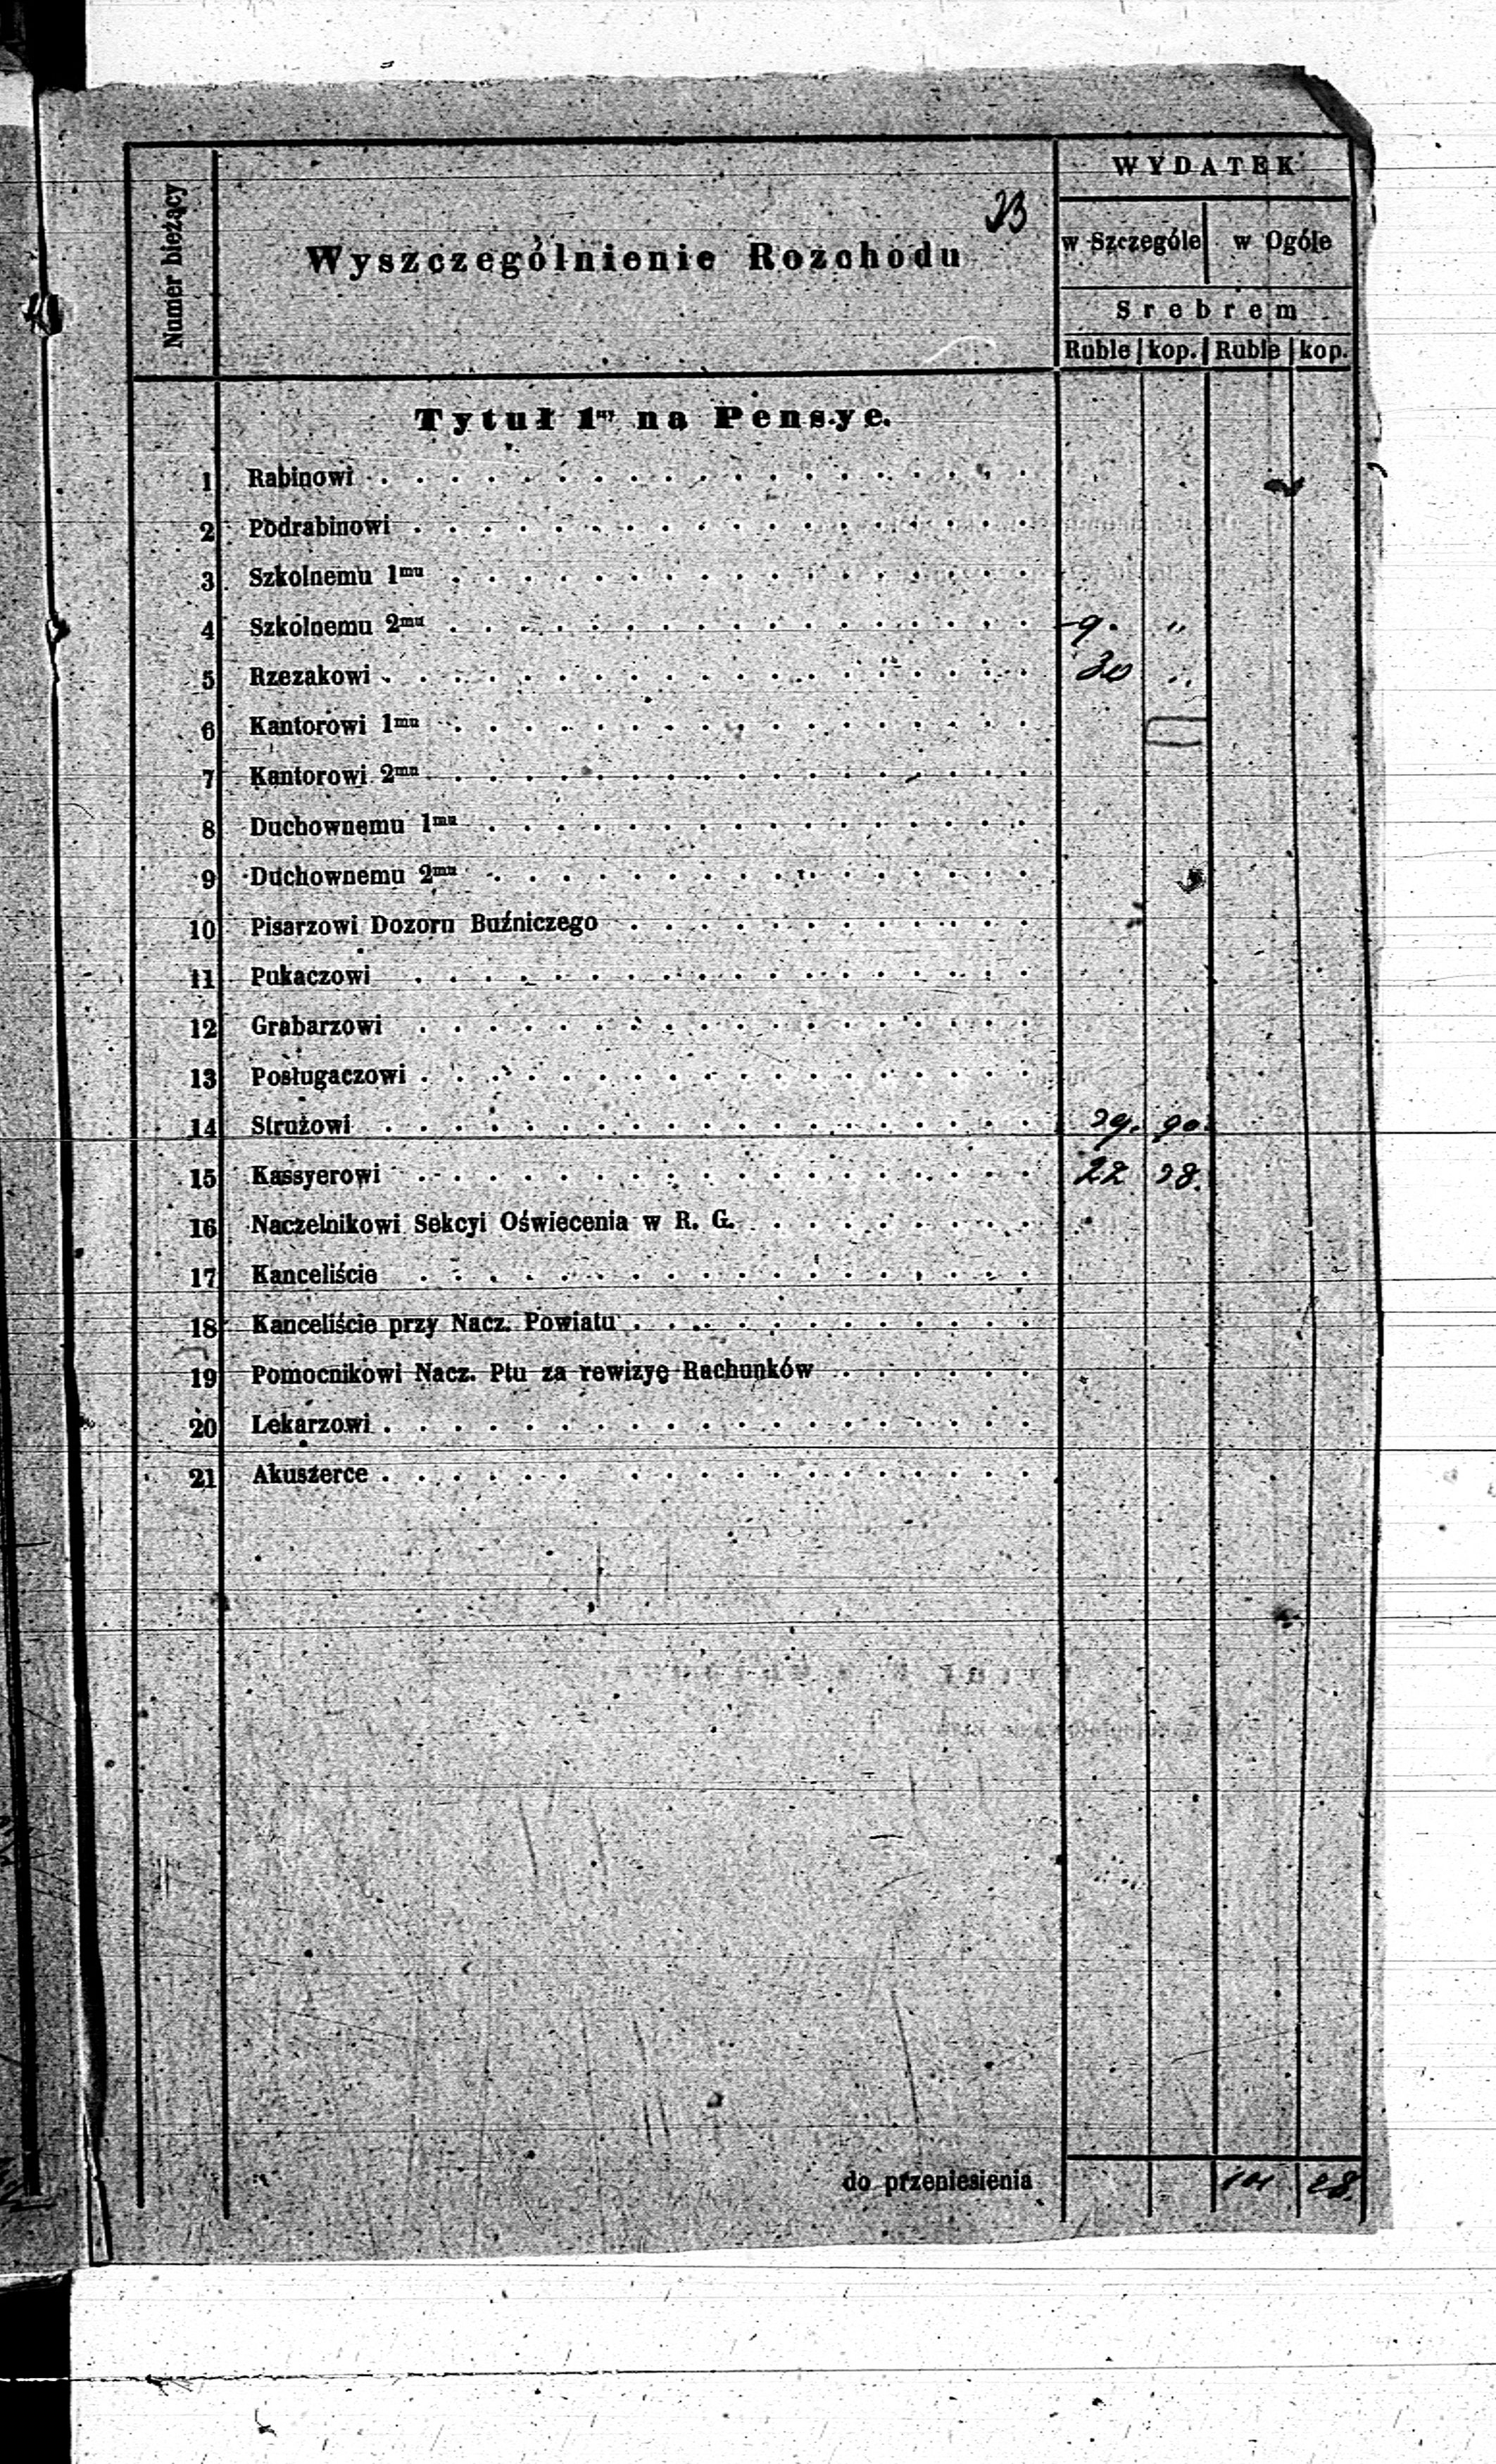 23
Numer bieżący
Wyszczególnienie Rozchodu
WYDATEK
w Szczególe w Ogóle
Srebrem
Ruble kop. Ruble kop.
Tytuł 1ny na Pensye.
1 Rabinowi
2 Podrabinowi
3 Szkolnemu 1mu
4 Szkolnemu 2mu 9. „
5 Rzezakowi 30 „
6 Kantorowi 1mu
7 Kantorowi 2mu
8 Duchownemu 1mu
9 Duchownemu 2mu
10 Pisarzowi Dozoru Buźniczego
11 Pukaczowi
12 Grabarzowi
13 Posługaczowi
14 Strużowi 39. 90.
15 Kassyerowi 22 38.
16 Naczelnikowi Sekcyi Oświecenia w R. G.
17 Kanceliście
18 Kanceliście przy Nacz. Powiatu
19 Pomocnikowi Nacz. Ptu za rewizyę Rachunków
20 Lekarzowi
21 Akuszerce
do przeniesienia 101 28.